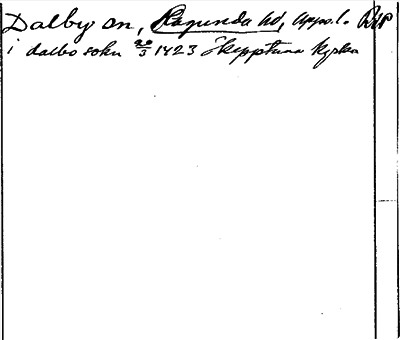 Dalby sn, Hagunda hd, Upps. l. BXP
i dalbo sokn 20/3 1423 Skepptuna kyrka